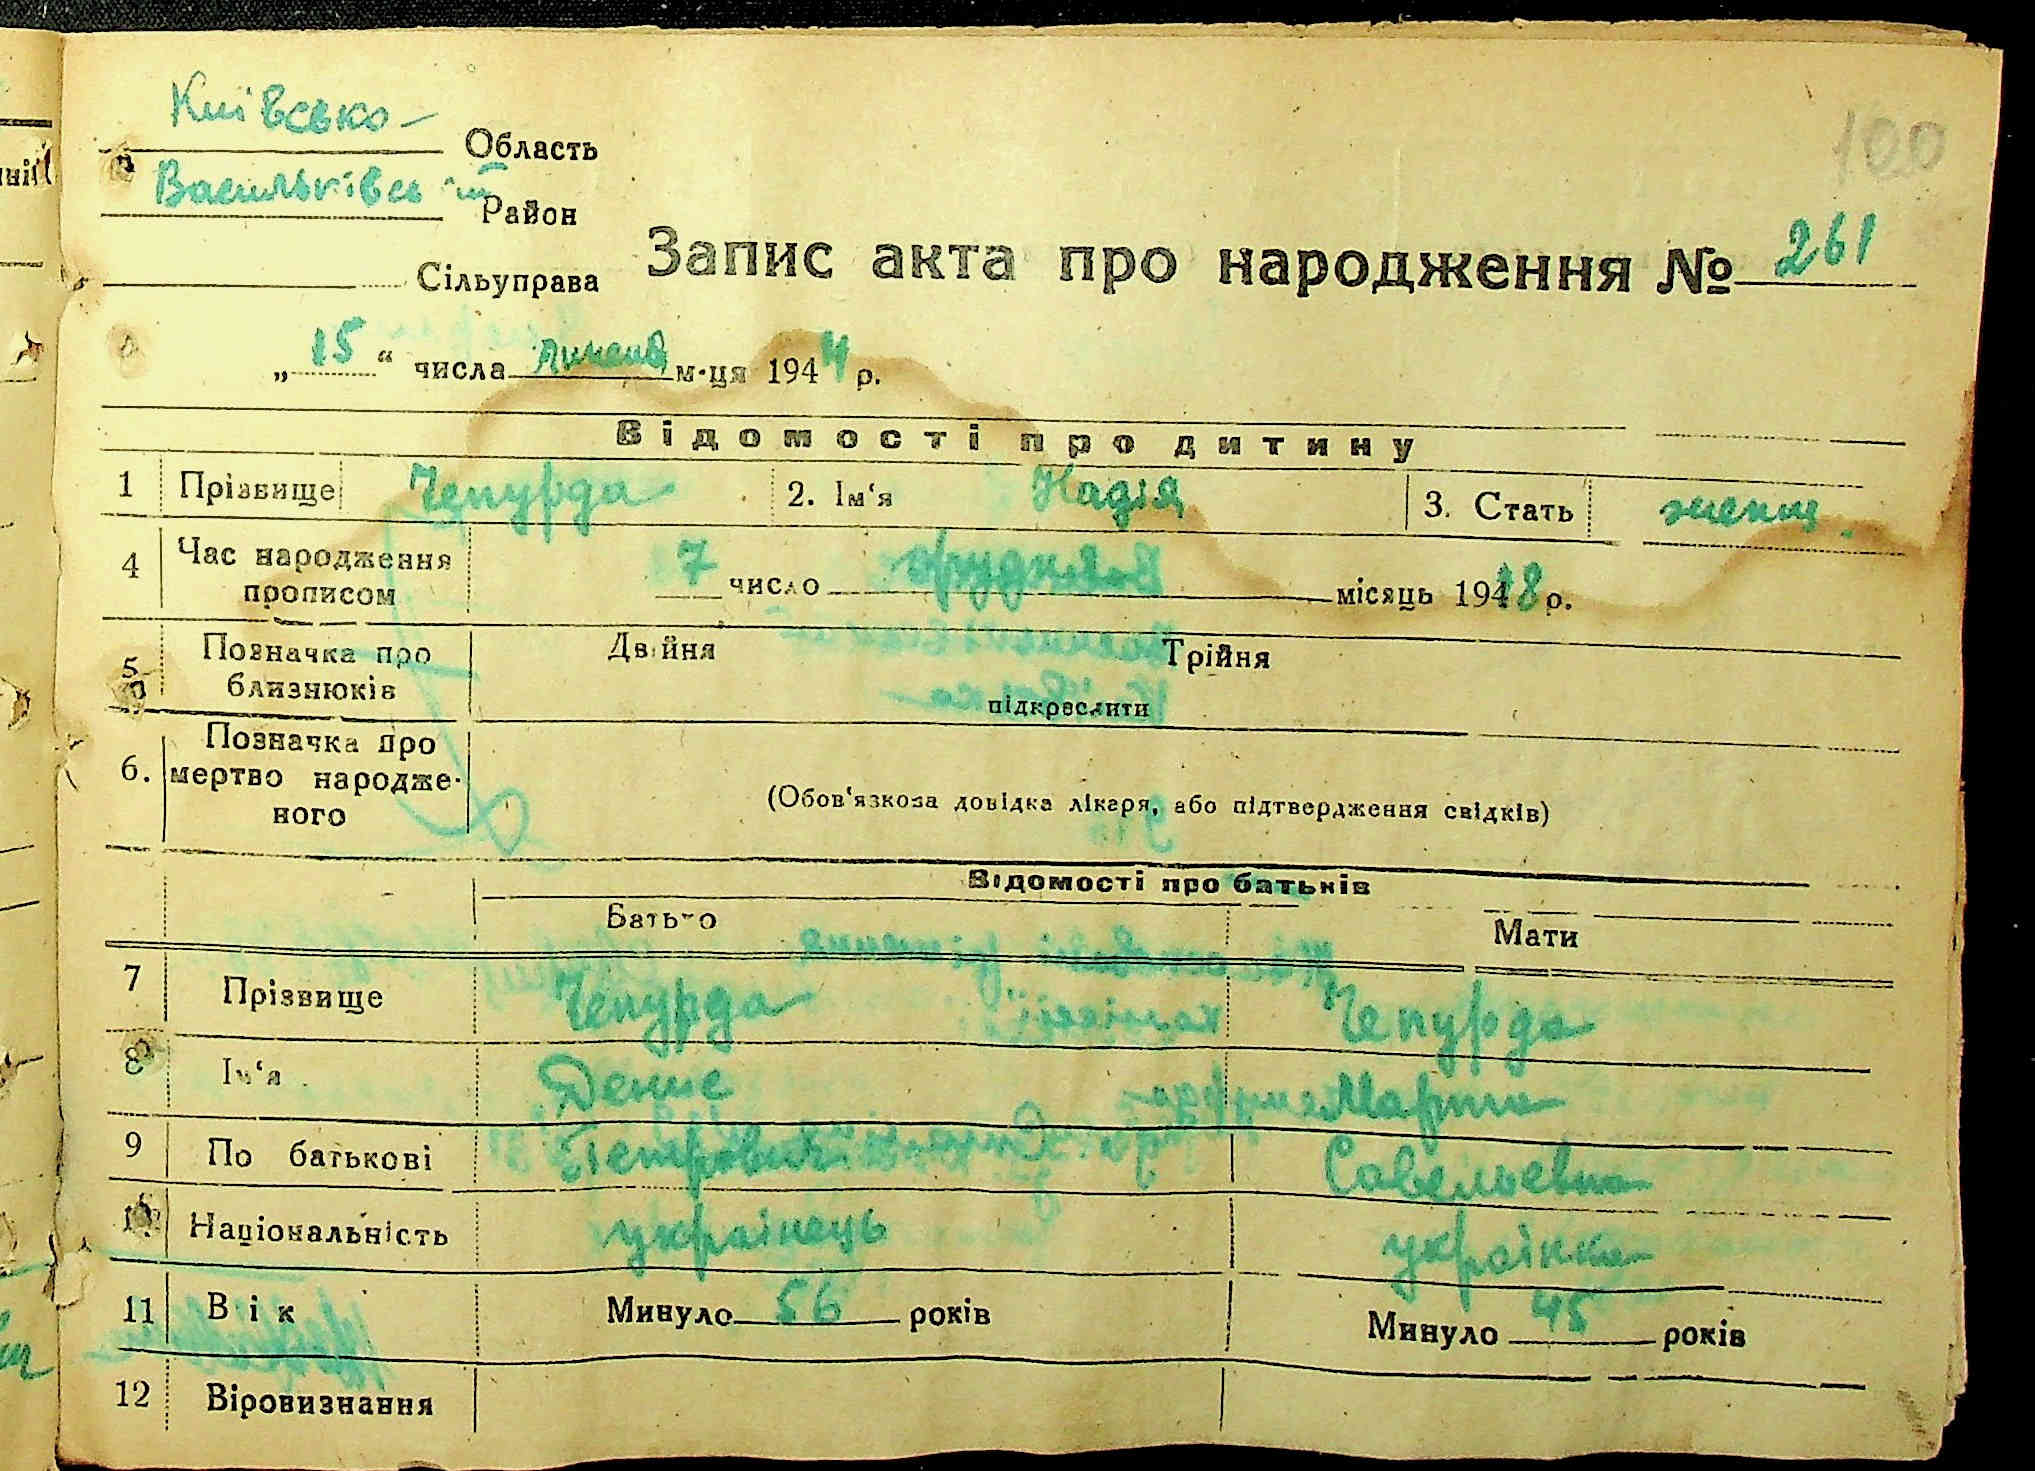 100
Київсько-
Область
Васильківський
Район
Сільуправа
Запис акта про народження № 261
„15“ числа липня м-ця 1944 р.
Відомості про дитину
1 Прізвище Чепурда 2. Ім‘я Надія 3. Стать женщ.
4 Час народження прописом 7 число місяць 1918 р.
5 Позначка про близнюків Двійня Трійня
підкреслити
6. Позначка про
мертво народже-
ного
(Обов‘язкова довідка лікаря, або підтвердження свідків)
Відомості про батьків
Батько Мати
7 Прізвище Чепурда Чепурда
8 Ім‘я Денис Марта
9 По батькові Петрович Савельевна
10 Національність українець українка
11 Вік Минуло 56 років Минуло 45 років
12 Віровизнання